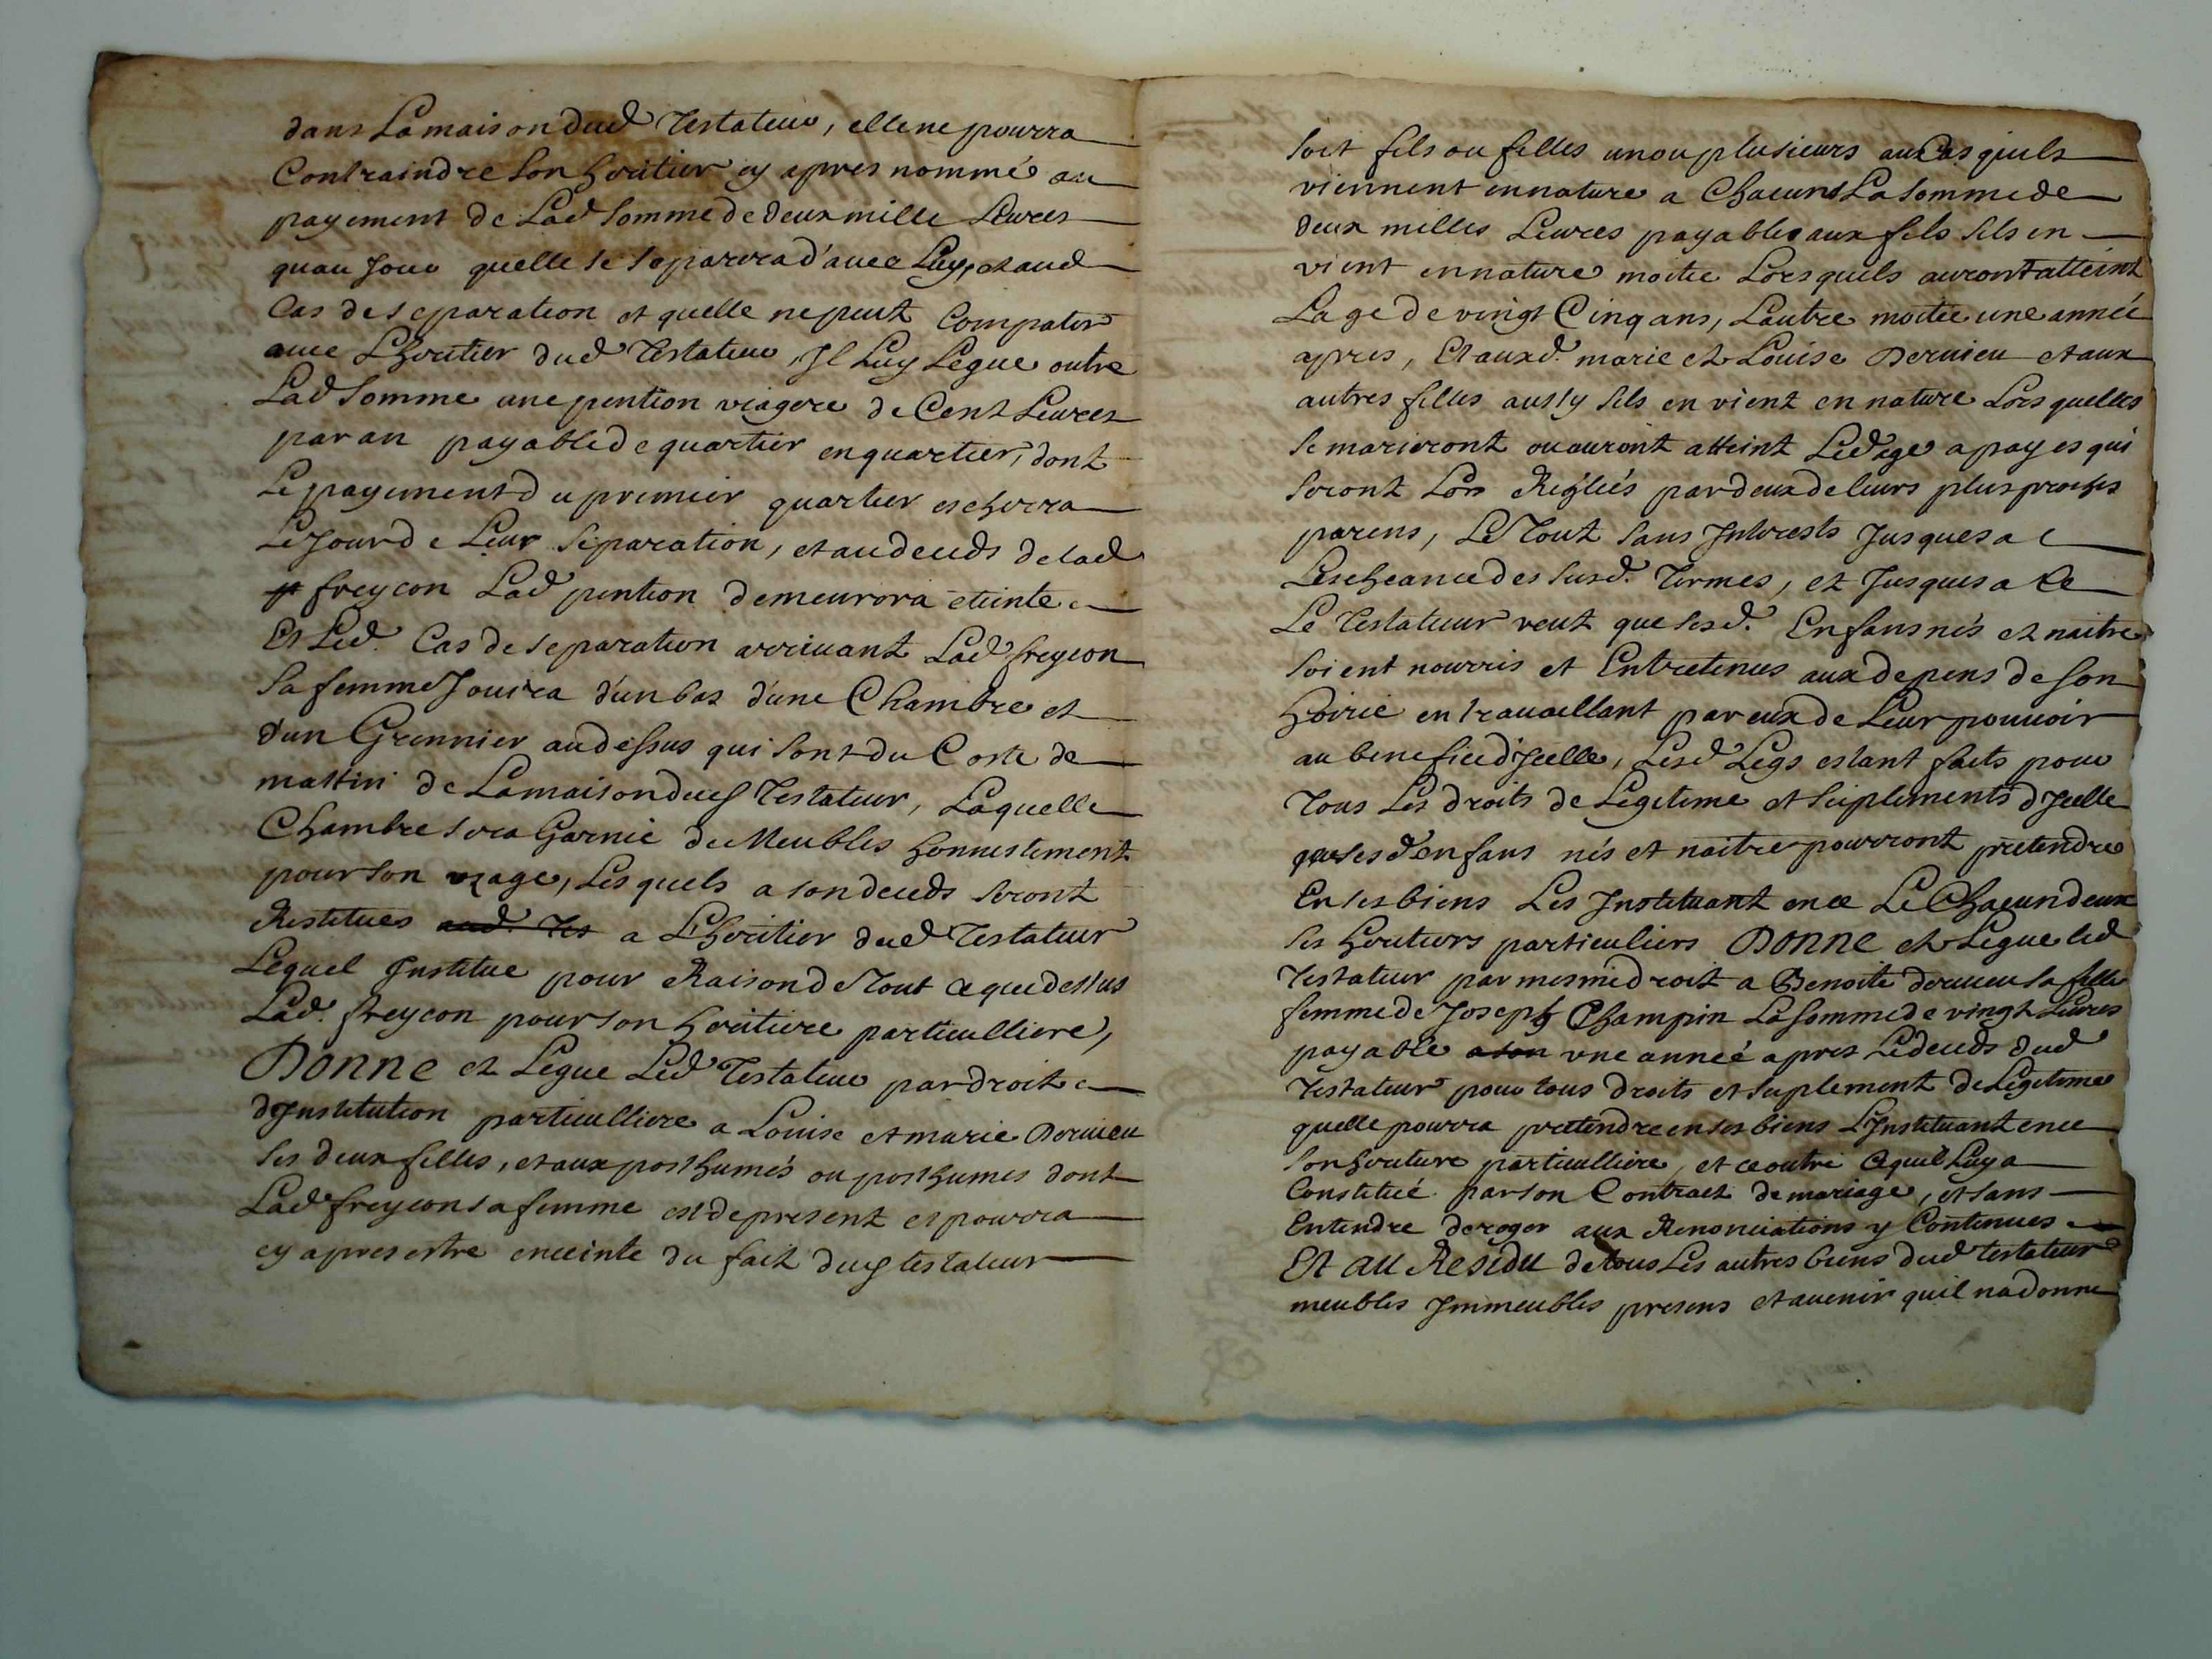 dans La maison dud Testateur, elle ne pourra
Contraindre Son heritier cy apres nommé au
payement de Lad Somme de deux mille Livres
quau Jour quelle se Separera d'avec Luy, et aud
Cas de separation et quelle ne peut Compatir
avec Lheritier dud Testateur, Il Luy Legue outre
Lad Somme une pention viagere de Cent Livres
par an payable de quartier en quartier, dont
Le payement du premier quartier escherra
Le Jour de Leur Separation, et au deceds de lad
freycon Lad pention demeurera eteinte
Et Led. Cas de separation arrivant Lad freycon
Sa femme Jouira d'un bas d'une Chambre et
d'un Grennier au dessus qui sont du Costé de
mattin de La maison dud Testateur, Laquelle
Chambre sera Garnie de Meubles honnestement
pour son usage, Les quels a son deceds seront
Restitues aud. Tes a L'heritier dud Testateur
Lequel Institue pour Raison de Tout ce que dessus
Lad. freycon pour son heritiere particulliere,
Donne et Legue Led Testateur par droit
d'Institution particulliere a Louise et marie Dervieu
ses deux filles, et aux posthumés ou posthumes dont
Lad freycon sa femme est de present et pourra
cy apres estre enceinte du fait dud testateur
Soit fils ou filles un ou plusieurs au Cas quils
viennent en nature a Chacuns La somme de
deux milles Livres payables aux fils sils en
vient en nature moitie Lors quils auront atteint
Lage de vingt Cinq ans, Lautre moitie une année
apres, Et auxd. marie et Louise Dervieu et aux
autres filles aussy sils en vient en nature Lors quelles
se marieront ou auront atteint Led age a payes qui
seront Lors Régliés par deux de leurs plus proches
parens, Le Tout sans Interests Jusques a
Lescheance des susd. Termes, et Jusques a Ce
Le Testateur veut que sesd. Enfans nés et naitre
soient nourris et Entretenus aux depens de son
hoirie en travaillant par eux de Leur pouvoir
au benefice d'Icelle, Lesd Legs estant faits pour
Tous Les droits de Legitime et supléments d'Icelle
que sesd enfans nés et naitre pourront pretendre
En ses biens Les Instituant en ce Le Chacun deux
ses heritiers particuliers Donne et Legue led
Testateur par mesme droit a Benoite dervieu sa fille
femme de Joseph Champin La somme de vingt Livres
payable a son une année apres Le deceds dud
Testateur pour tous droits et suplement de Legitime
quelle pourra pretendre en ses biens L'Instituant en ce
son heritiere particulliere, et ce outre ce quil Luy a
Constitué par son Contract de mariage, et sans
Entendre deroger aux Renonciations y Contenues
Et au Residu de tous Les autres biens dud testateur
meubles Immeubles presens et avenir quil na donne